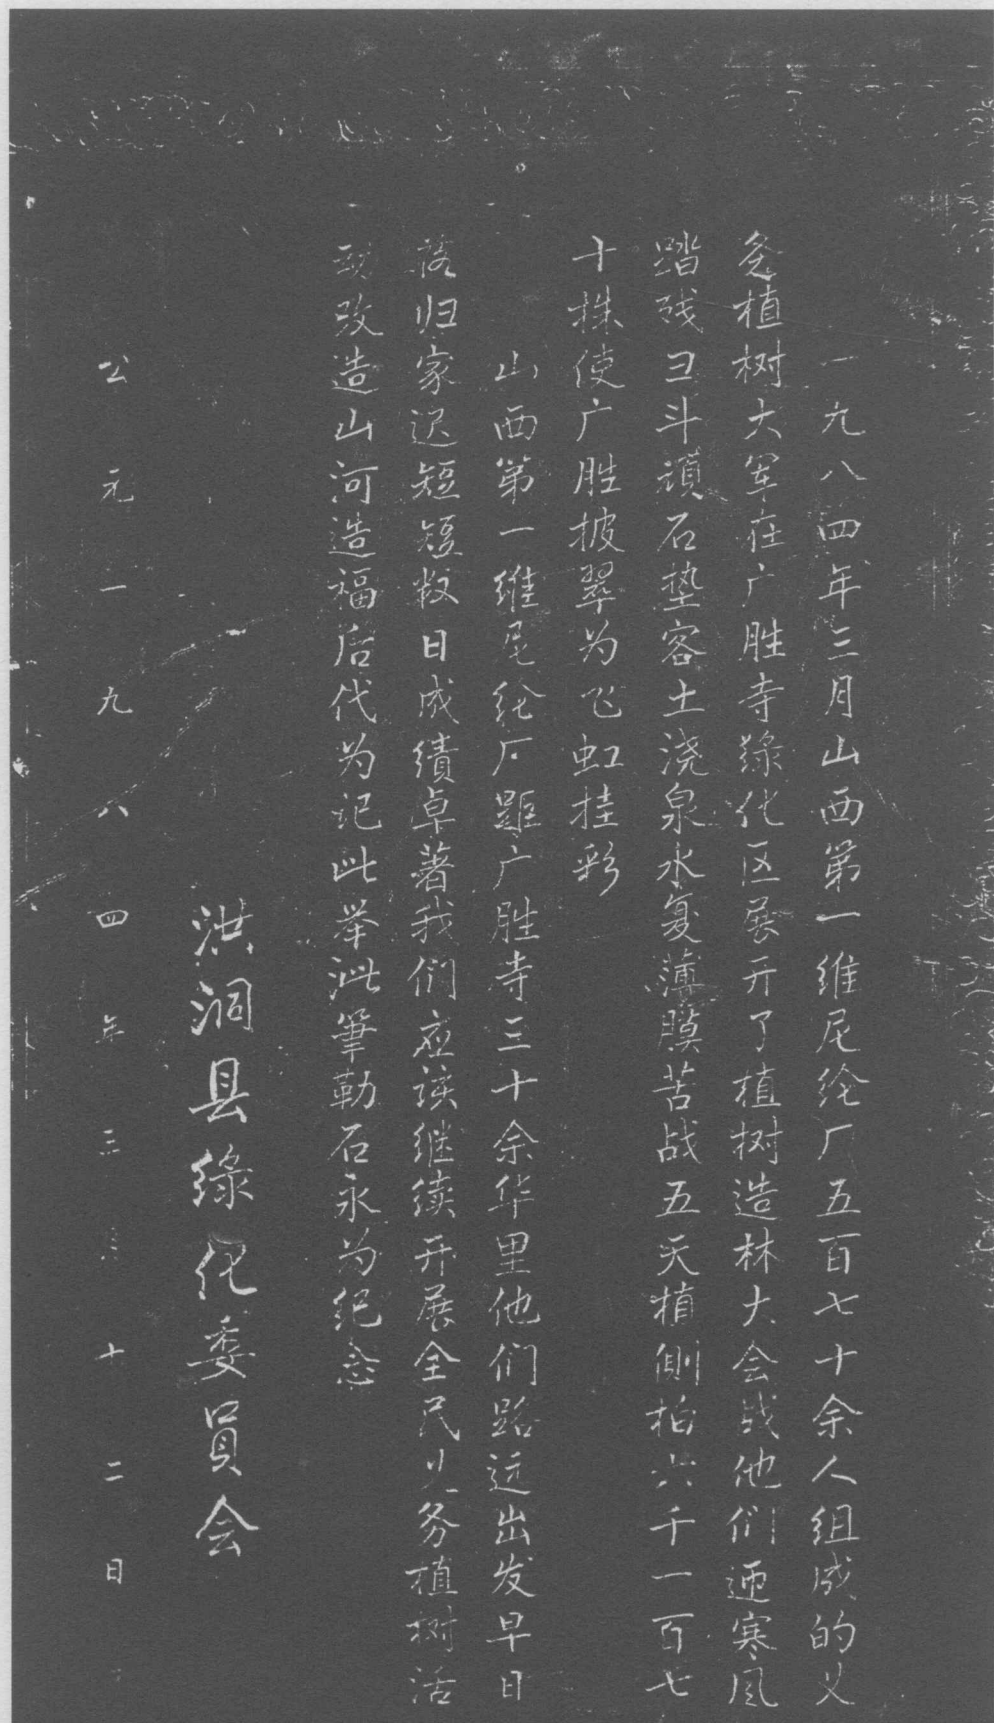 一九八四年三月山西第一维尼纶厂五百七十余人组成的义
务植树大军在广胜寺绿化区展开了植树造林大会战他们迎寒风
踏残彐斗顽石垫客土浇泉水复薄膜苦战五天植侧柏六千一百七
十株使广胜披翠为飞虹挂彩
山西第一维尼纶厂距广胜寺三十余华里他们路远出发早日
落归家迟短短数日成绩卓著我们应该继续开展全民义务植树活
动改造山河造福后代为记此举泚筆勒石永为纪念
洪洞县綠化委員会
公元一九八四年三月十二日